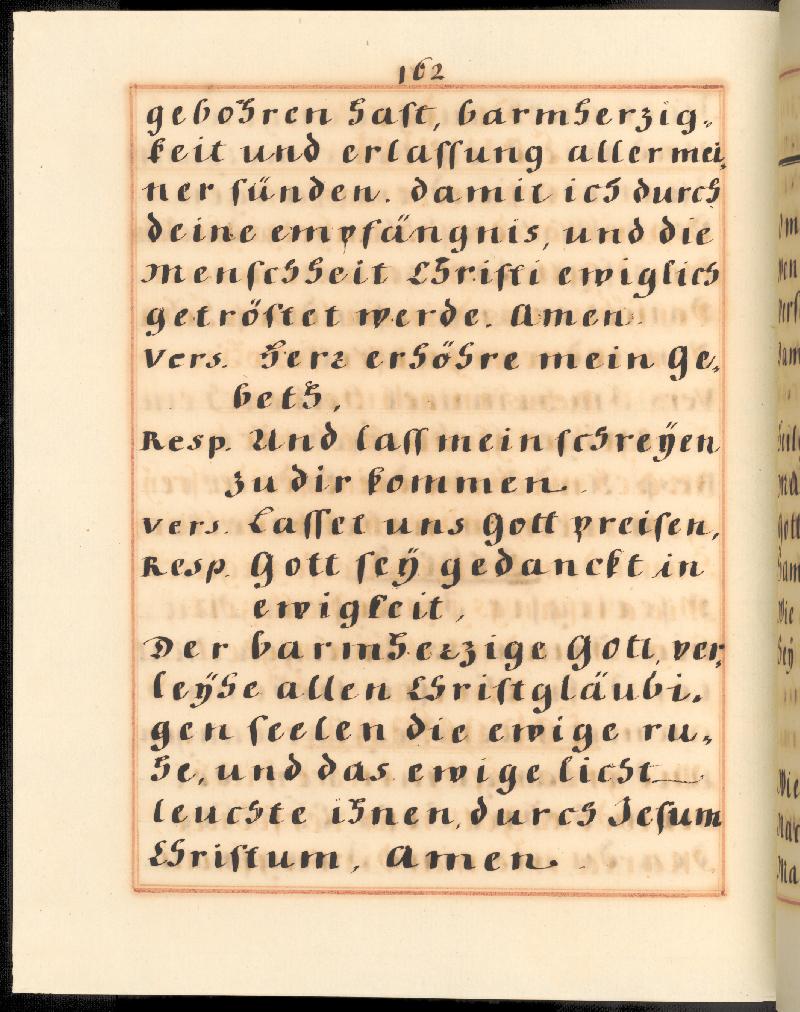 162
gebohren hast, barmherzig-
keit und erlassung aller mei-
ner sünden. damit ich durch
deine empfängnis, und die
Menschheit Christi ewiglich
getröstet werde. Amen.
Vers. Herr erhöhre mein Ge-
beth,
Resp. Und lass mein schreÿen
zu dir kommen.
Vers. Lasset uns Gott preisen,
Resp. Gott seÿ gedanckt in
ewigkeit,
Der barmherzige Gott, ver-
leÿhe allen Christgläubi-
gen seelen die ewige ru-
he, und das ewige licht
leuchte ihnen, durch Jesum
Christum, Amen.